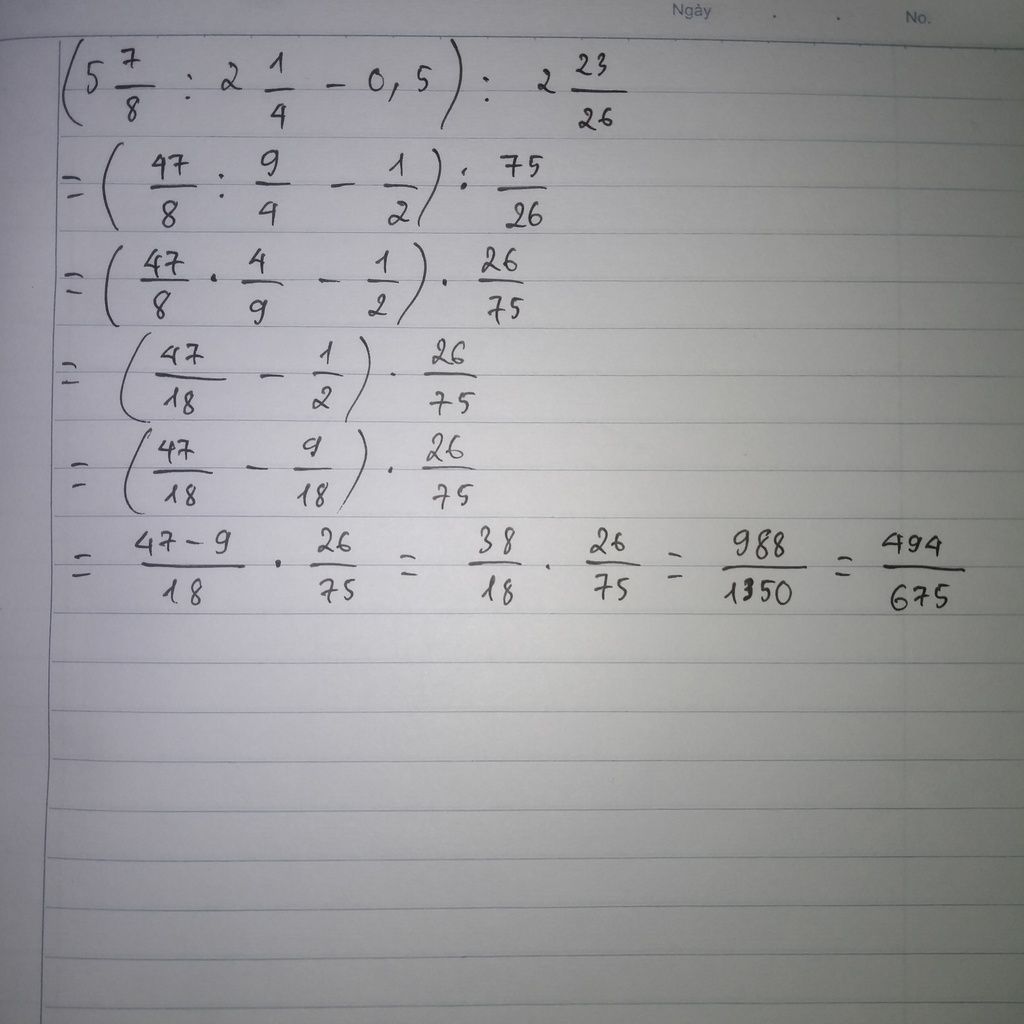 Ngày . . No.
(5 7/8 : 2 1/4 - 0,5) : 2 23/26
= (47/8 : 9/4 - 1/2) : 75/26
= (47/8 . 4/9 - 1/2) . 26/75
= (47/18 - 1/2) . 26/75
= (47/18 - 9/18) . 26/75
= 47-9/18 . 26/75 = 38/18 . 26/75 = 988/1350 = 494/675